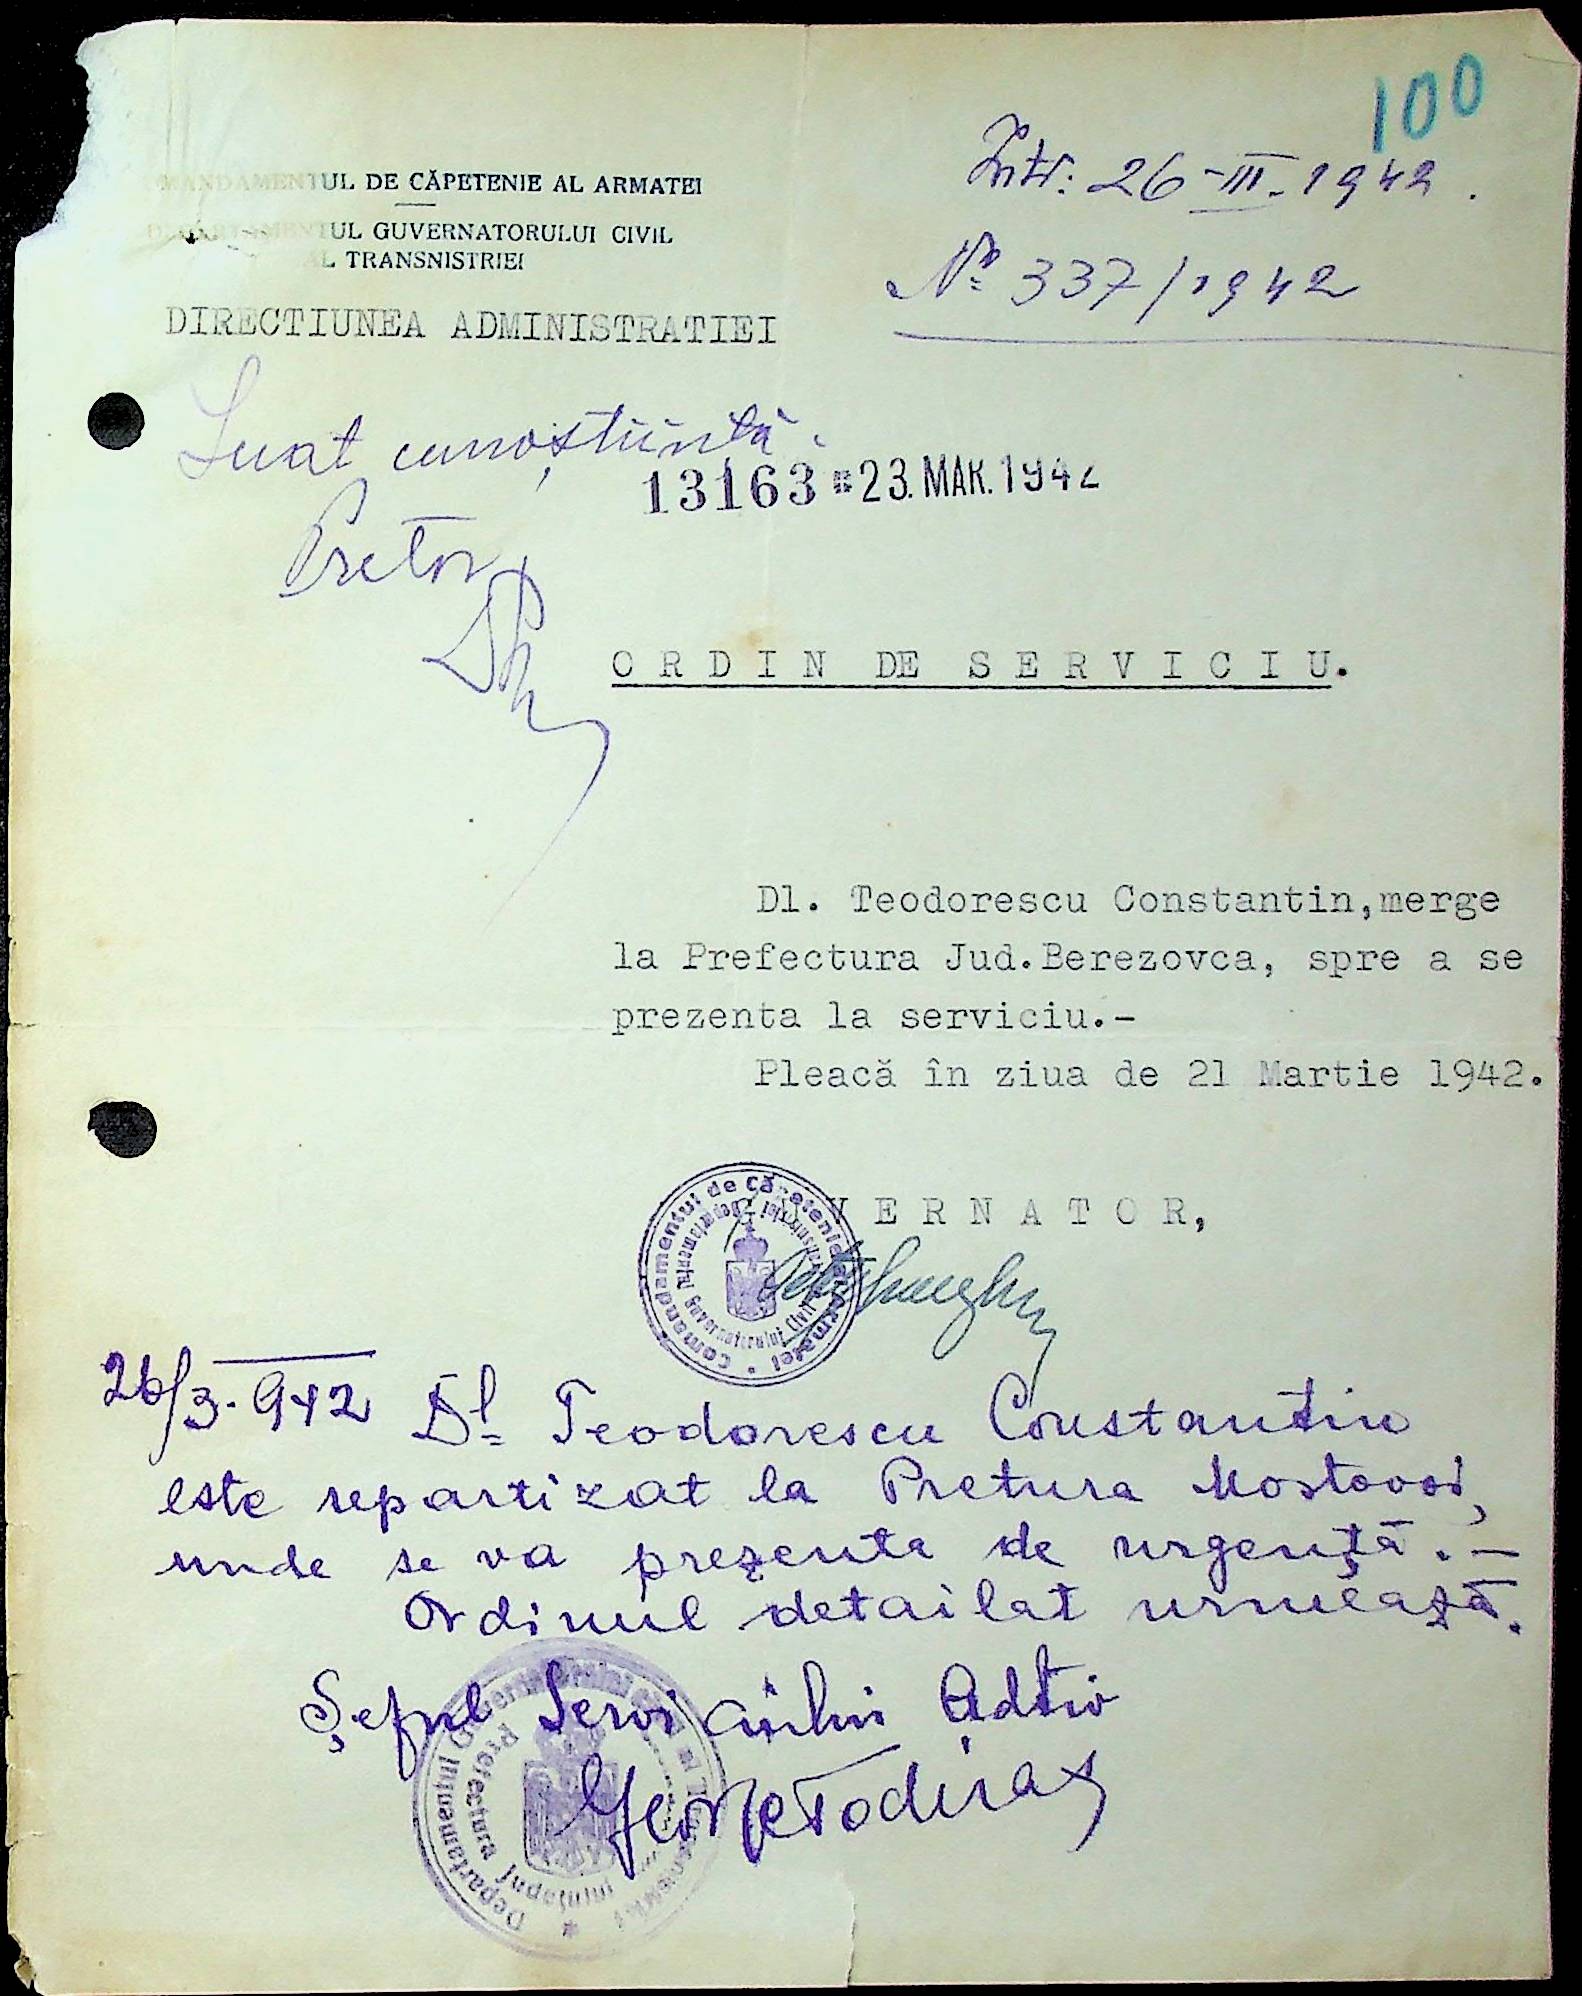 100
Intr: 26-III-1942.
№ 337/1942
MANDAMENTUL DE CĂPETENIE AL ARMATEI
DEPARTAMENTUL GUVERNATORULUI CIVIL
AL TRANSNISTRIEI
DIRECTIUNEA ADMINISTRATIEI
Luat cunoștiință.
13163 * 23. MAR. 1942
Pretor
ORDIN DE SERVICIU.
Dl. Teodorescu Constantin,merge
la Prefectura Jud.Berezovca, spre a se
prezenta la serviciu.-
Pleacă în ziua de 21 Martie 1942.
GUVERNATOR,
Comandamentul de Căpetenie al Armatei
Departamentul Guvernatorului Civil al Transnistriei
26/3.942 Dl Teodorescu Constantin
este repartizat la Pretura Mostovoi,
unde se va prezenta de urgență.-
Ordinul detailat urmează.
Șeful Serviciului Adtiv
George Todiraș
Departamentul Guvernatorului Civil al Transnistriei
Prefectura Județului